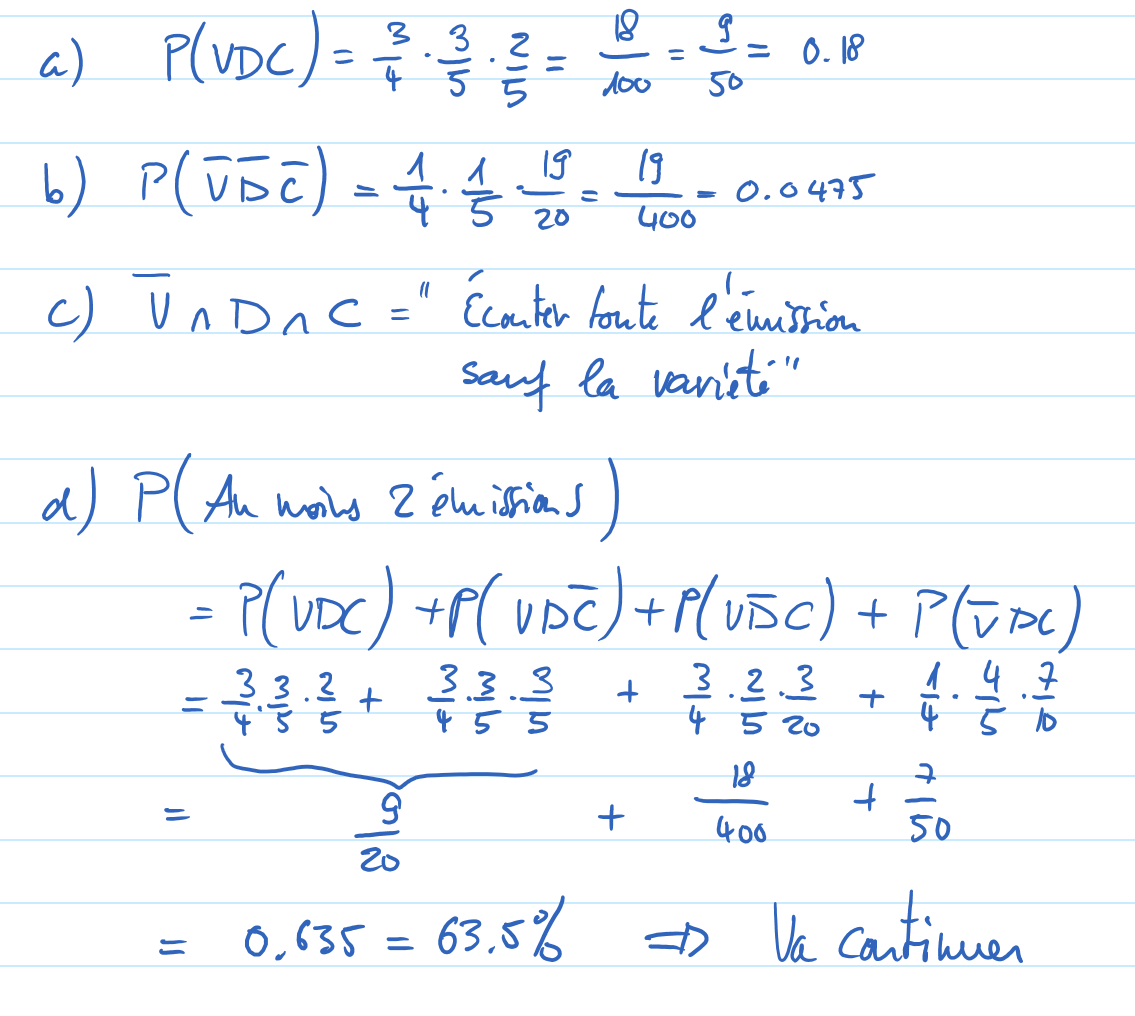 a) P(VDC) = 3/4 · 3/5 · 2/5 = 18/100 = 9/50 = 0.18
b) P(V̅D̅C̅) = 1/4 · 1/5 · 19/20 = 19/400 = 0.0475
c) V̅ ∩ D ∩ C = " Écouter toute l'émission
sauf la variété"
d) P(Au moins 2 émissions)
= P(VDC) + P(VDC̅) + P(VD̅C) + P(V̅DC)
= 3/4 · 3/5 · 2/5 + 3/4 · 3/5 · 3/5 + 3/4 · 2/5 · 3/20 + 1/4 · 4/5 · 7/10
= 9/20 + 18/400 + 7/50
= 0.635 = 63.5% ⇒ Va continuer